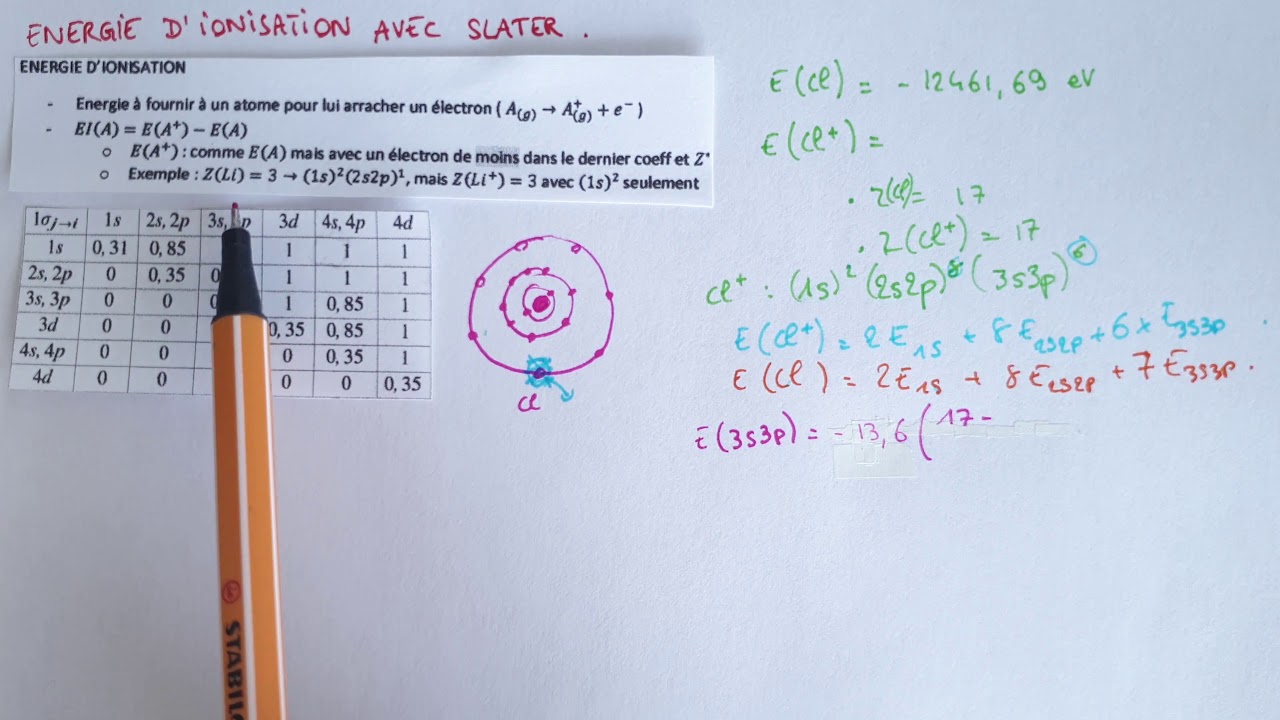 ENERGIE D'IONISATION AVEC SLATER.
ENERGIE D'IONISATION
- Energie à fournir à un atome pour lui arracher un électron ( A(g) → A⁺(g) + e⁻ )
- EI(A) = E(A⁺) − E(A)
o E(A⁺) : comme E(A) mais avec un électron de moins dans le dernier coeff et Z*
o Exemple : Z(Li) = 3 → (1s)²(2s2p)¹, mais Z(Li⁺) = 3 avec (1s)² seulement
1σj→i 1s 2s, 2p 3s, p 3d 4s, 4p 4d
1s 0, 31 0, 85 1 1 1
2s, 2p 0 0, 35 1 1 1
3s, 3p 0 0 1 0, 85 1
3d 0 0 0, 35 0, 85 1
4s, 4p 0 0 0 0, 35 1
4d 0 0 0 0 0, 35
Cl
E(Cl) = - 12461,69 eV
E(Cl⁺) =
. Z(Cl) = 17
. Z(Cl⁺) = 17
Cl⁺ : (1s)² (2s2p)⁸ (3s3p)⁶
E(Cl⁺) = 2E1s + 8E2s2p + 6 × E3s3p
E(Cl) = 2E1s + 8E2s2p + 7E3s3p.
E(3s3p) = - 13,6 ( 17 -
STABILO